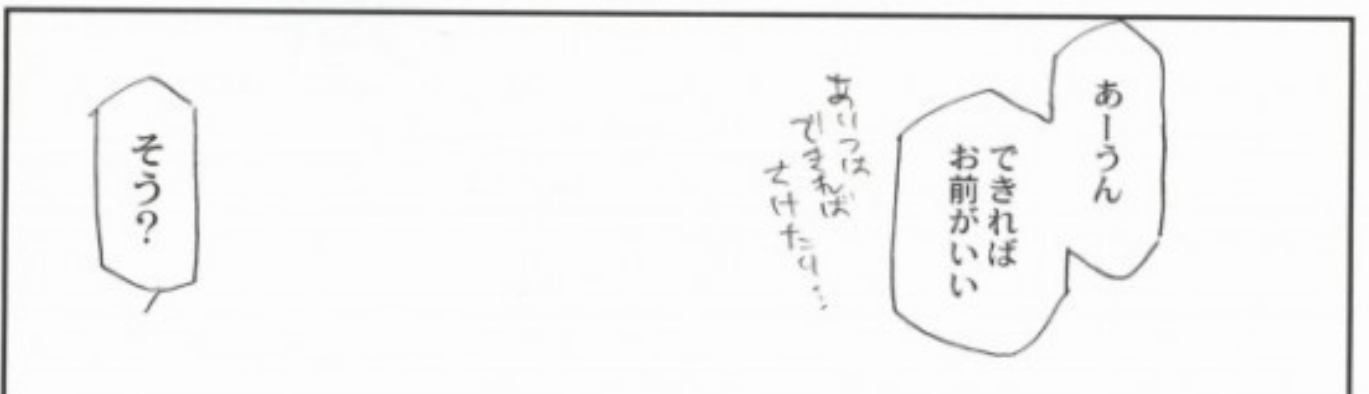 あーうん
できれば
お前がいい
あいつは
できれば
さけたい…
そう？